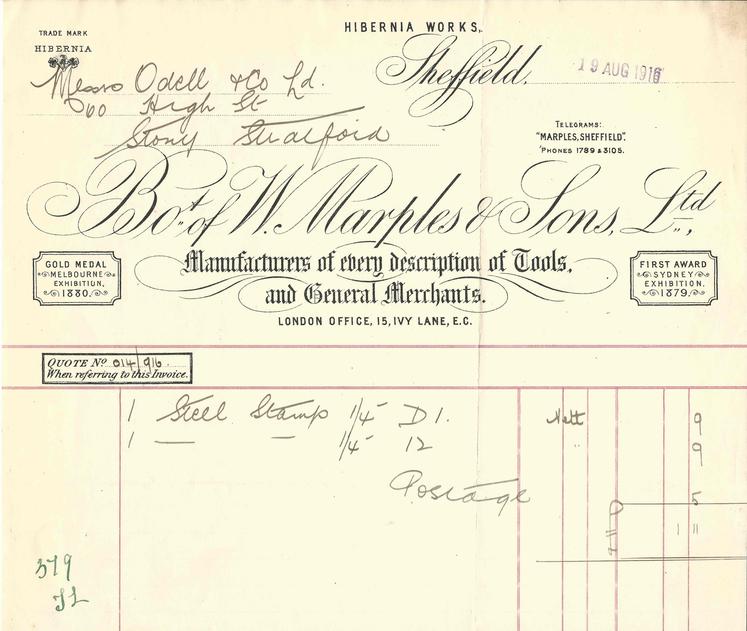 TRADE MARK
HIBERNIA
HIBERNIA WORKS,
Sheffield. 19 AUG 1916
Messrs Odell & Co Ld.
60 High St
Stony Stratford
TELEGRAMS:
"MARPLES, SHEFFIELD".
'PHONES 1789 & 3105.
Bot. of W. Marples & Sons, Ltd.,
GOLD MEDAL
MELBOURNE
EXHIBITION,
1880.
Manufacturers of every description of Tools,
and General Merchants.
FIRST AWARD
SYDNEY
EXHIBITION,
1879.
LONDON OFFICE, 15, IVY LANE, E.C.
QUOTE No 014/916
When referring to this Invoice.
1 Steel Stamp 1/4" D1. Nett 9
1 — — 1/4" 12 " 9
Postage 5
1 11
379